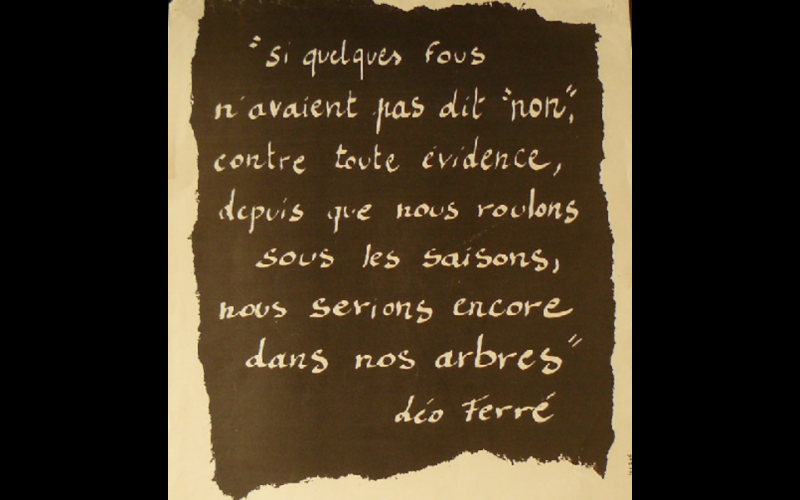 "si quelques fous
n'avaient pas dit "non",
contre toute évidence,
depuis que nous roulons
sous les saisons,
nous serions encore
dans nos arbres"
Léo Ferré